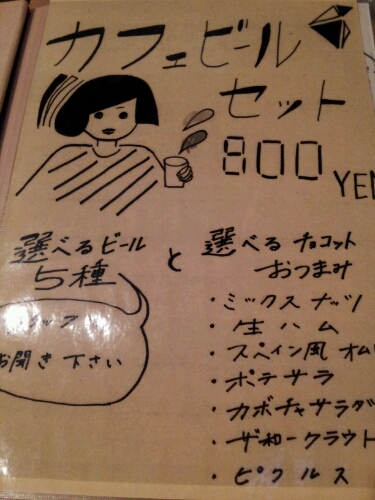 カフェビール
セット
800 YEN
選べるビール
5種
お聞き下さい
と
選べる チョコット
おつまみ
・ミックスナッツ
・生ハム
・スペイン風オム
・ポテサラ
・カボチャサラダ
・ザ和ークラウト
・ピクルス